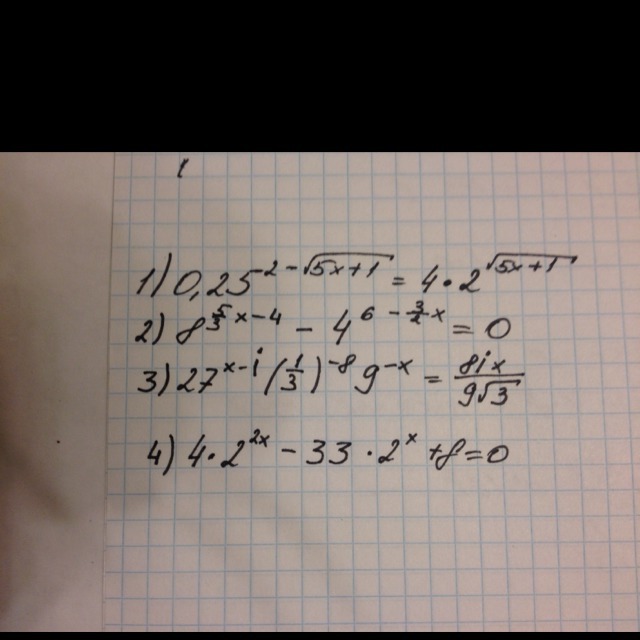 1) 0,25^{2-√(5x+1)} = 4·2^{√(5x+1)}
2) 8^{5/3 x-4} - 4^{6-3/2 x} = 0
3) 27^{x-1} (1/3)^{-8} 9^{-x} = 81^x/(9√3)
4) 4·2^{2x} - 33·2^x + 8 = 0